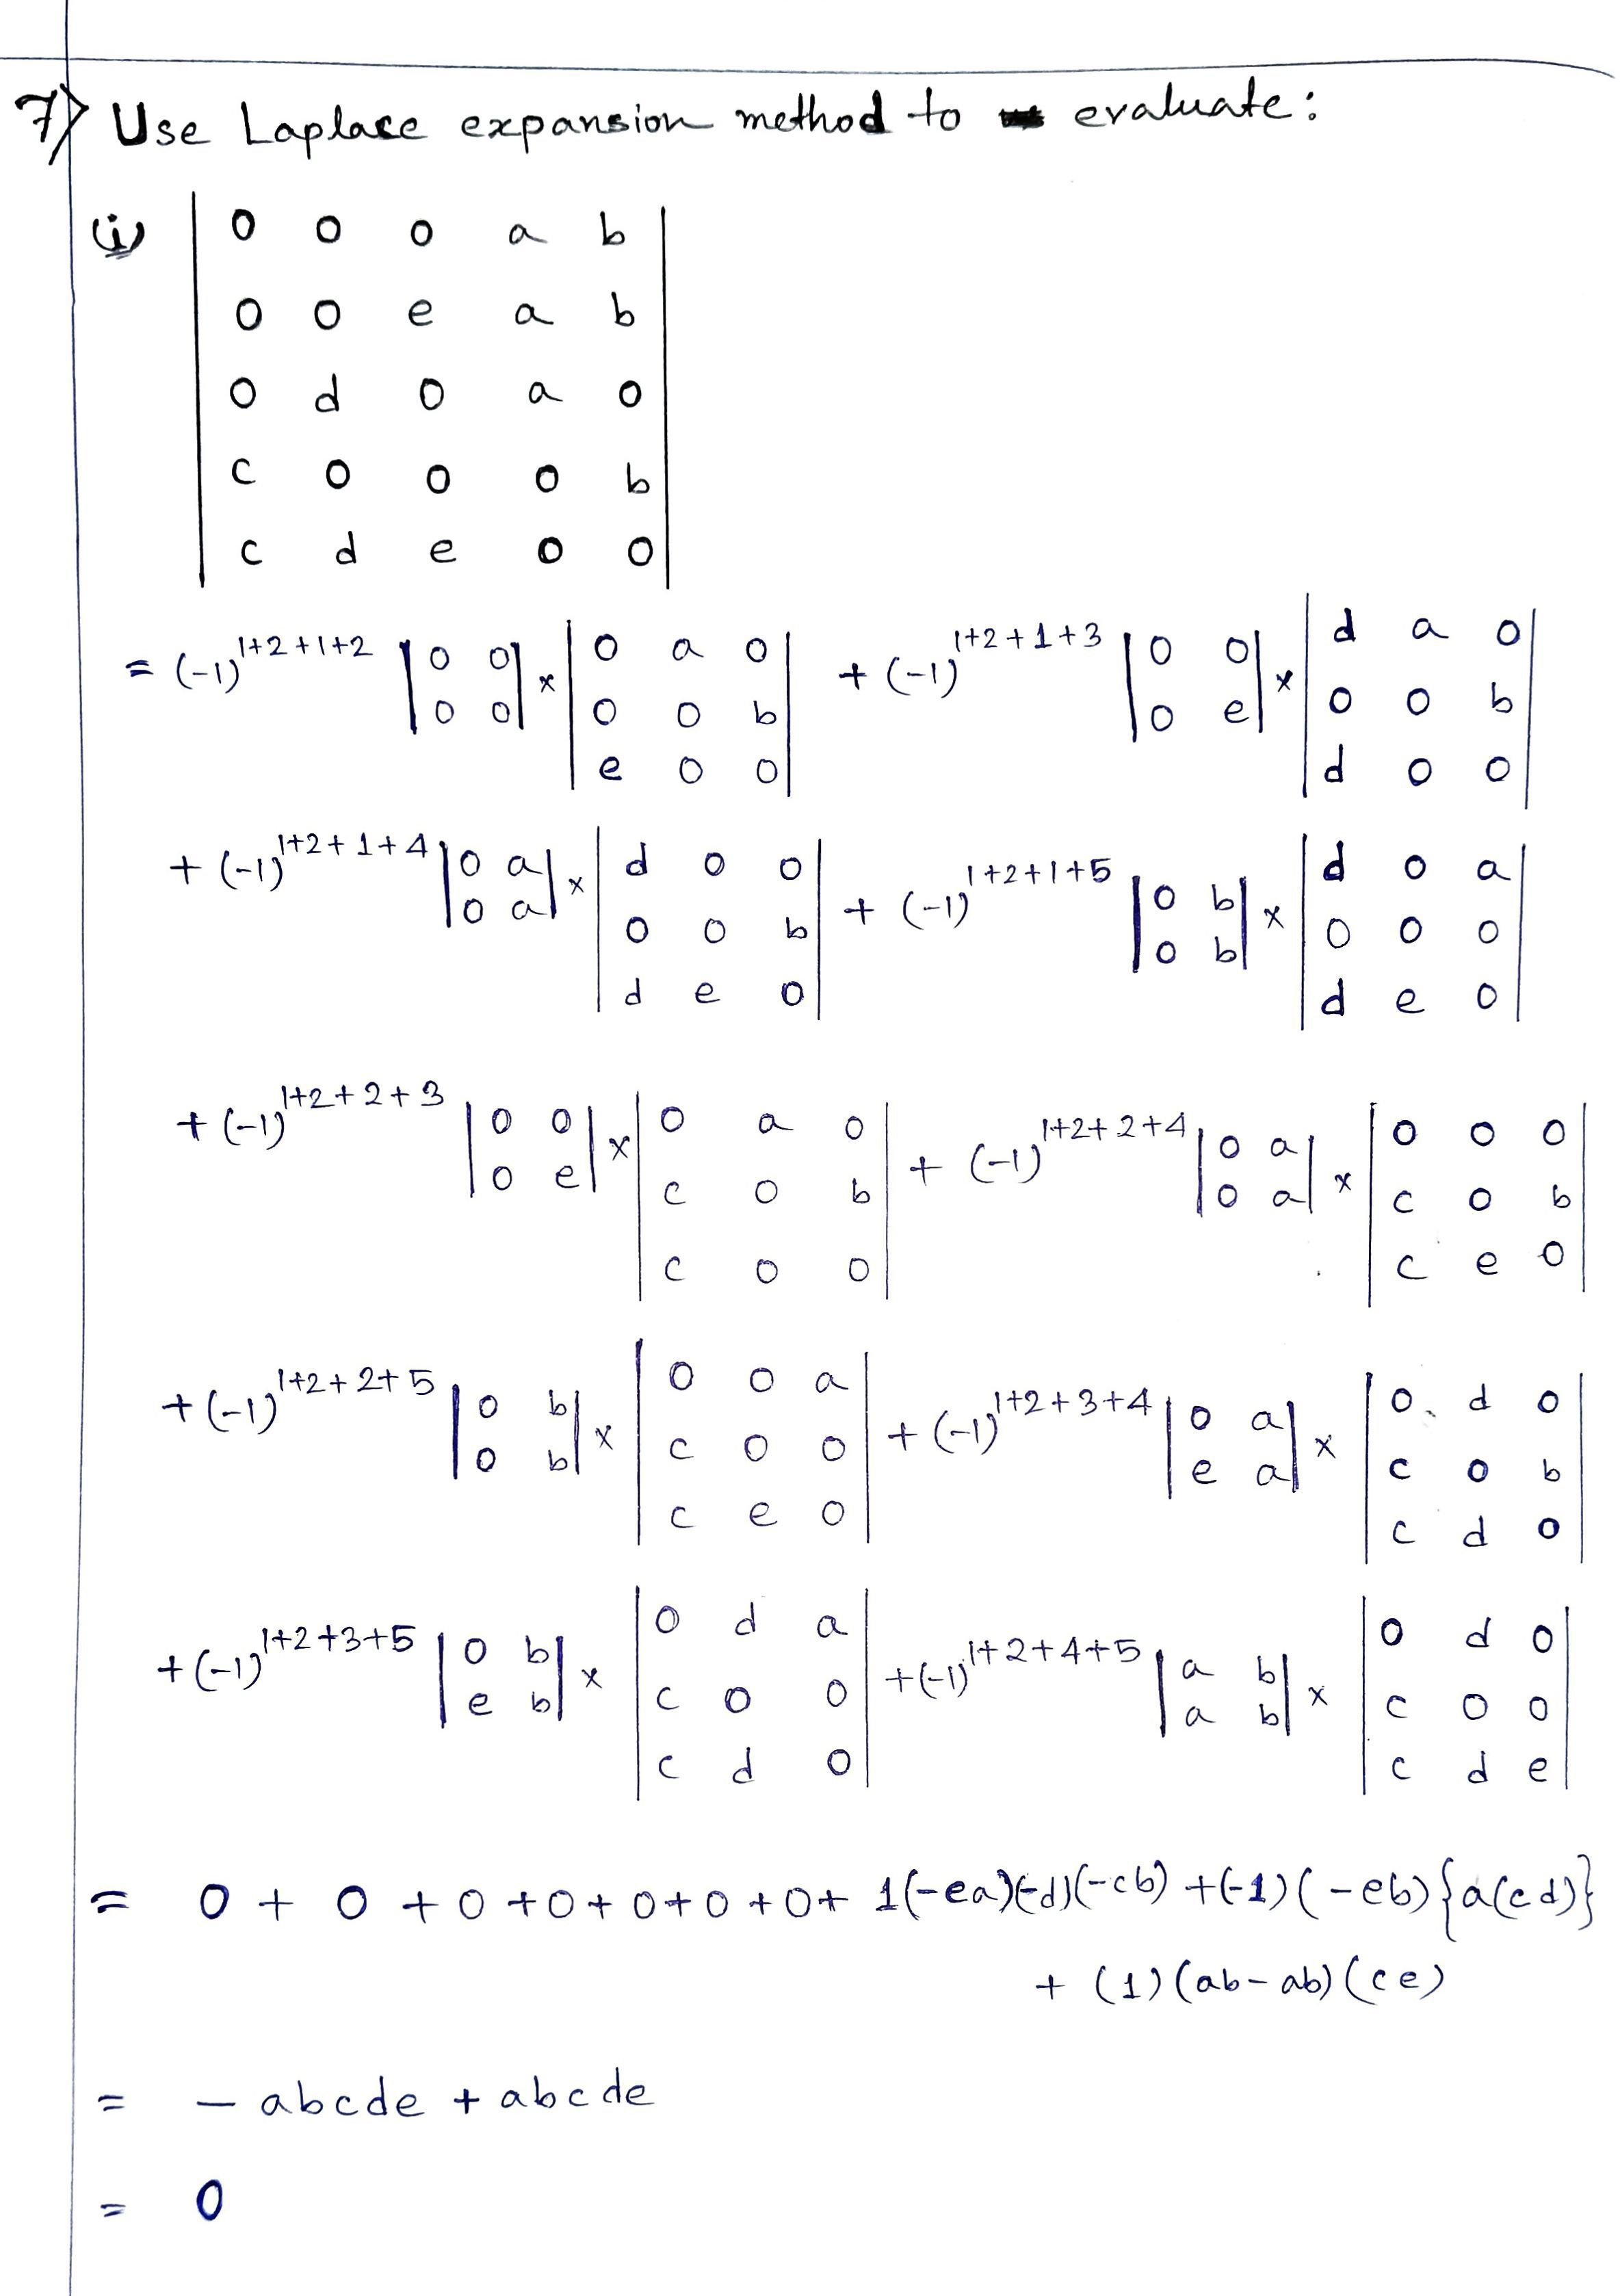 7) Use Laplace expansion method to evaluate:
(i) | 0 0 0 a b |
| 0 0 e a b |
| 0 d 0 a 0 |
| c 0 0 0 b |
| c d e 0 0 |
= (-1)^{1+2+1+2} | 0 0 ; 0 0 | × | 0 a 0 ; 0 0 b ; e 0 0 | + (-1)^{1+2+1+3} | 0 0 ; 0 e | × | d a 0 ; 0 0 b ; d 0 0 |
+ (-1)^{1+2+1+4} | 0 a ; 0 a | × | d 0 0 ; 0 0 b ; d e 0 | + (-1)^{1+2+1+5} | 0 b ; 0 b | × | d 0 a ; 0 0 0 ; d e 0 |
+ (-1)^{1+2+2+3} | 0 0 ; 0 e | × | 0 a 0 ; c 0 b ; c 0 0 | + (-1)^{1+2+2+4} | 0 a ; 0 a | × | 0 0 0 ; c 0 b ; c e 0 |
+ (-1)^{1+2+2+5} | 0 b ; 0 b | × | 0 0 a ; c 0 0 ; c e 0 | + (-1)^{1+2+3+4} | 0 a ; e a | × | 0 d 0 ; c 0 b ; c d 0 |
+ (-1)^{1+2+3+5} | 0 b ; e b | × | 0 d a ; c 0 0 ; c d 0 | + (-1)^{1+2+4+5} | a b ; a b | × | 0 d 0 ; c 0 0 ; c d e |
= 0 + 0 + 0 + 0 + 0 + 0 + 0 + 1(-ea)(-d)(-cb) + (-1)(-eb){a(cd)}
+ (1)(ab-ab)(ce)
= - abcde + abcde
= 0